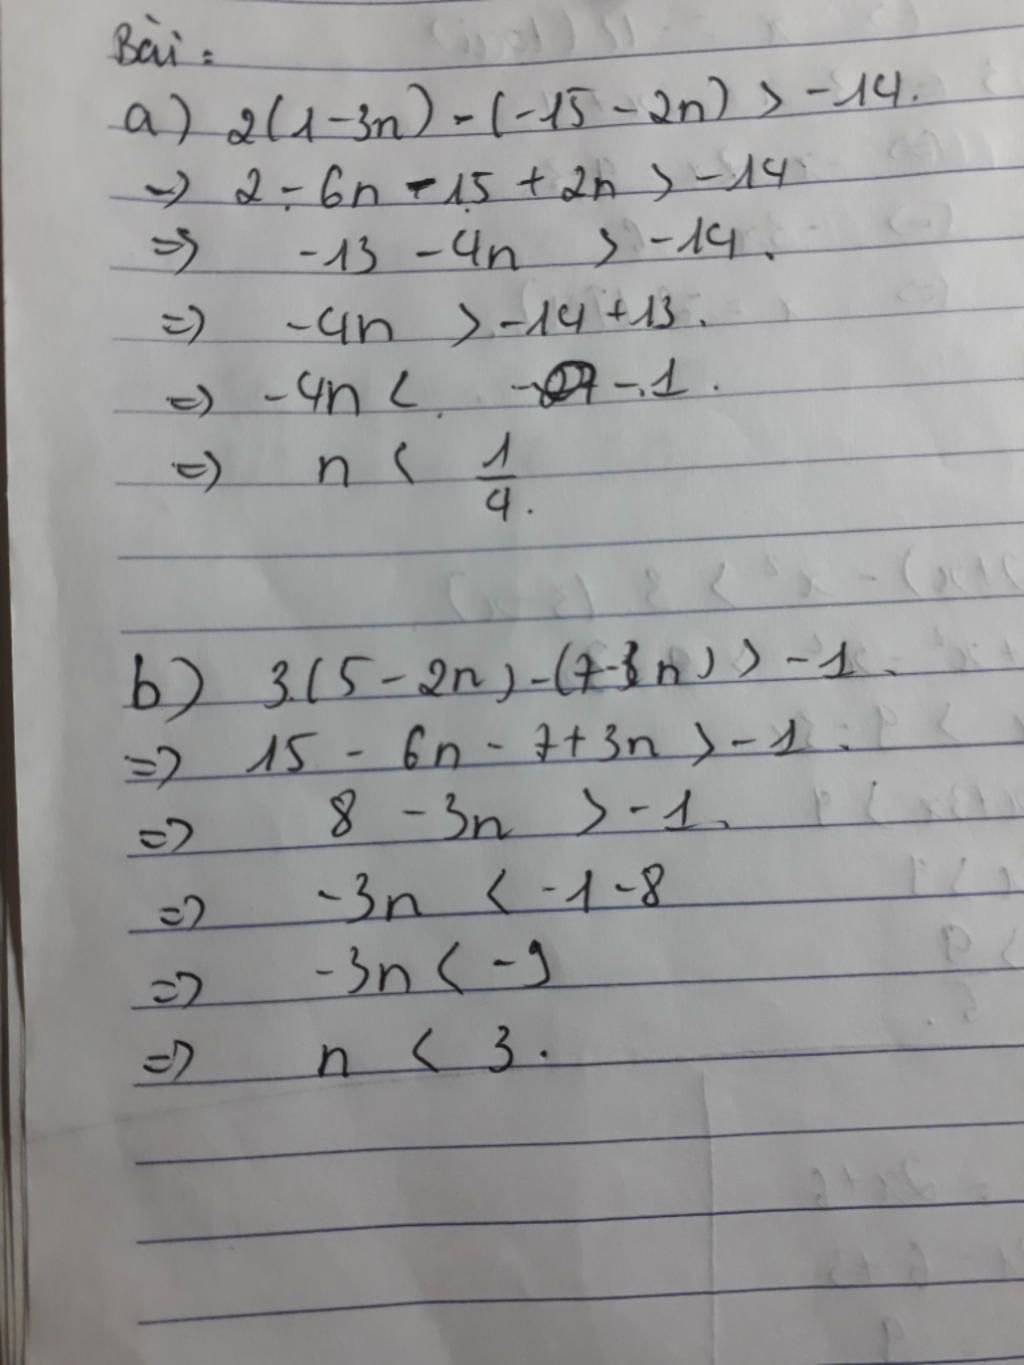 Bài:
a) 2(1-3n) - (-15 - 2n) > -14.
=> 2 - 6n - 15 + 2n > -14
=> -13 - 4n > -14.
=> -4n > -14 + 13.
=> -4n < -1.
=> n < 1/4.
b) 3.(5 - 2n) - (7-3n) > -1.
=> 15 - 6n - 7 + 3n > -1.
=> 8 - 3n > -1.
=> -3n < -1 - 8
=> -3n < -9
=> n < 3.